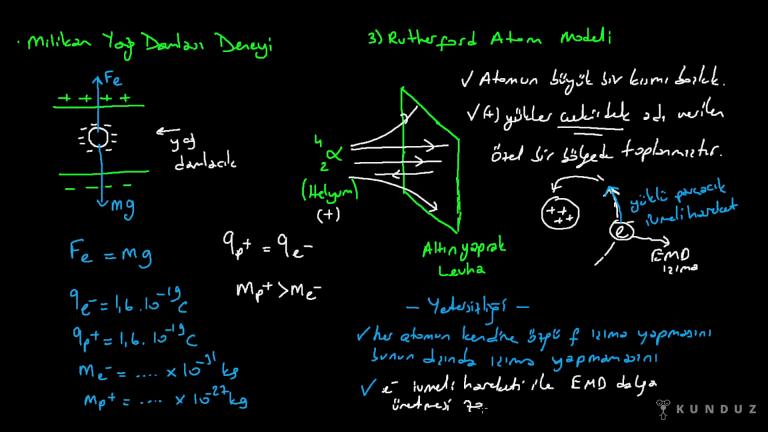 · Milikan Yağ Damlası Deneyi
Fe
+ + + +
yağ
damlacık
- - - -
mg
Fe = mg
qe- = 1,6 . 10^-19 C
qp+ = 1,6 . 10^-19 C
me- = .... x 10^-31 kg
mp+ = .... x 10^-27 kg
qp+ = qe-
mp+ > me-
3) Rutherford Atom Modeli
4
2 α
(Helyum)
(+)
Altın yaprak
Levha
✓ Atomun büyük bir kısmı boşluk.
✓ (+) yükler çekirdek adı verilen
özel bir bölgede toplanmıştır.
++
++
e
yüklü parçacık
ivmeli hareket
EMD
ışıma
- Yetersizliği -
✓ her atomun kendine özgü f ışıma yapmasını
bunun dışında ışıma yapmamasını
✓ e- ivmeli hareketi ile EMD dalga
üretmesi
KUNDUZ